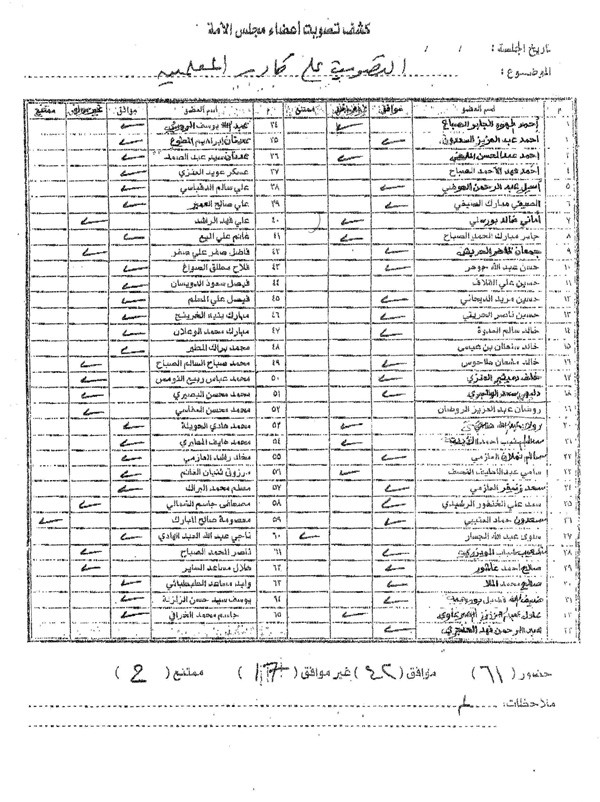 كشف تصويت أعضاء مجلس الأمة
تاريخ الجلسة : / /
الموضوع : التصويت على كادر المعلمين
م اسم العضو موافق غير موافق ممتنع م اسم العضو موافق غير موافق ممتنع
١ أحمد الجابر الصباح ٣٤ عبد الله يوسف الرومي
٢ أحمد عبد العزيز السعدون ٣٥ عدنان إبراهيم المطوع
٣ أحمد عبد المحسن المليفي ٣٦ عدنان سيد عبد الصمد
٤ أحمد فهد الأحمد الصباح ٣٧ عسكر عويد العنزي
٥ أسيل عبد الرحمن العوضي ٣٨ علي سالم الدقباسي
٦ الصيفي مبارك الصيفي ٣٩ علي صالح العمير
٧ أماني خالد بورسلي ٤٠ علي فهد الراشد
٨ جابر مبارك الحمد الصباح ٤١ غانم علي الميع
٩ جمعان ظاهر الحربش ٤٢ فاضل صفر علي صفر
١٠ حسن عبد الله جوهر ٤٣ فلاح مطلق الصواغ
١١ حسين علي القلاف ٤٤ فيصل سعود الدويسان
١٢ حسين مزيد الديحاني ٤٥ فيصل علي المسلم
١٣ حسين ناصر الحريتي ٤٦ مبارك بنيه الخرينج
١٤ خالد سالم العدوة ٤٧ مبارك محمد الوعلان
١٥ خالد سلطان بن عيسى ٤٨ محمد براك المطير
١٦ خالد مشعان طاحوس ٤٩ محمد صباح السالم الصباح
١٧ خلف دميثير العنزي ٥٠ محمد عباس ربيع النومس
١٨ ٥١ محمد محسن البصيري
١٩ روضان عبد العزيز الروضان ٥٢ محمد محسن العفاسي
٢٠ ٥٣ محمد هادي الحويلة
٢١ ٥٤ محمد هايف المطيري
٢٢ سالم نملان العازمي ٥٥ مخلد راشد العازمي
٢٣ سامي عبد اللطيف النصف ٥٦ مرزوق ثنيان الغانم
٢٤ سعد زنيفر العازمي ٥٧ مسلم محمد البراك
٢٥ سعد علي الخنفور الرشيدي ٥٨ مصطفى جاسم الشمالي
٢٦ سعدون حماد العتيبي ٥٩ معصومة صالح المبارك
٢٧ سلوى عبد الله الجسار ٦٠ ناجي عبد الله العبد الهادي
٢٨ شعيب شباب المويزري ٦١ ناصر المحمد الصباح
٢٩ صالح أحمد عاشور ٦٢ هلال مساعد الساير
٣٠ صالح محمد الملا ٦٣ وليد مساعد الطبطبائي
٣١ ضيف الله فضيل بورمية ٦٤ يوسف سيد حسن الزلزلة
٣٢ ٦٥ جاسم محمد الخرافي
٣٣ عبد الرحمن فهد العنجري
حضور ( ٦١ ) موافق ( ٤٢ ) غير موافق ( ١٧ ) ممتنع ( 2 )
ملاحظات :